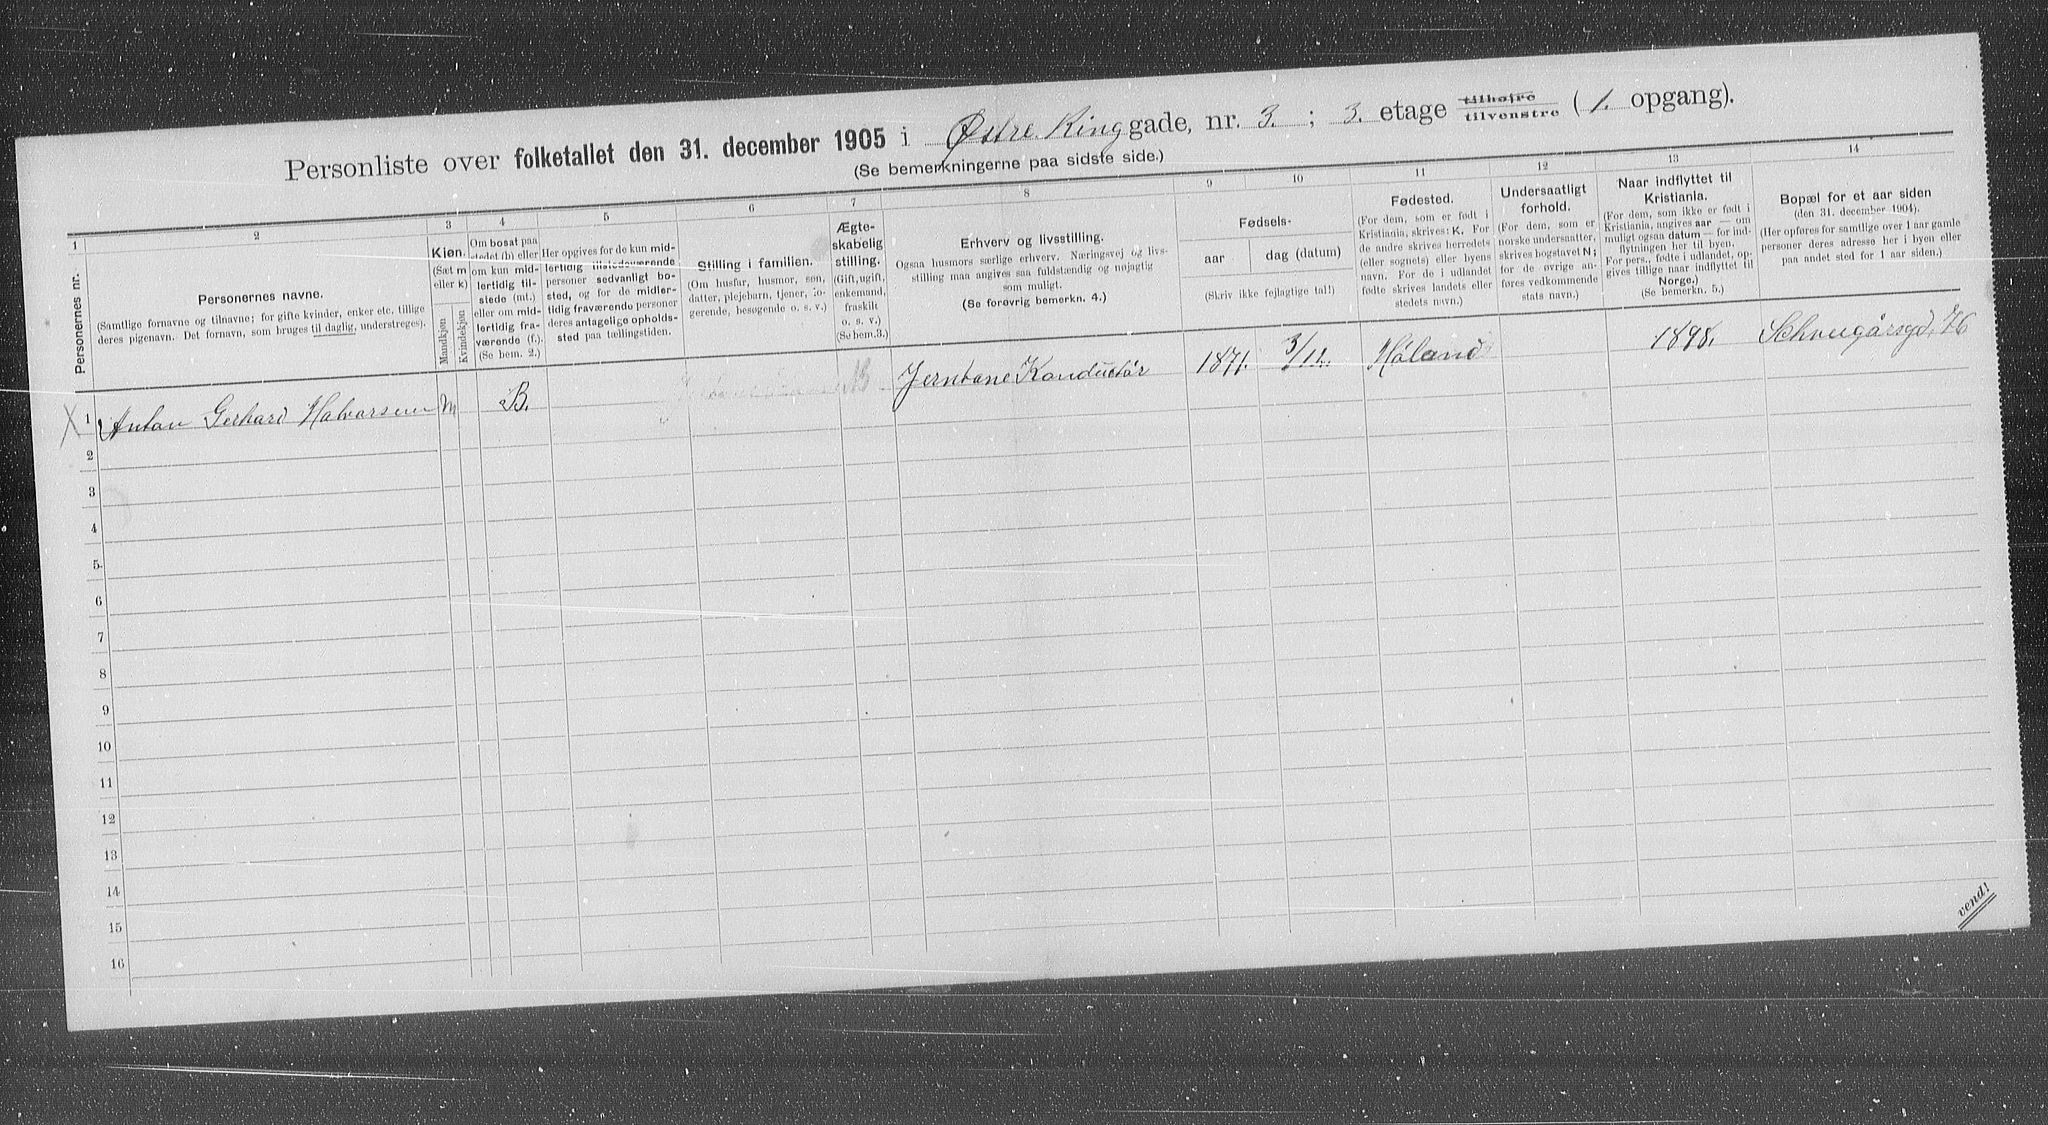 Personliste over folketallet den 31. december 1905 i Østre Ring gade, nr. 3. ; 3. etage tilhøjre tilvenstre ( 1. opgang).
(Se bemerkningerne paa sidste side.)
1 2 3 4 5 6 7 8 9 10 11 12 13 14
Personernes nr.
Personernes navne.
(Samtlige fornavne og tilnavne; for gifte kvinder, enker etc. tillige
deres pigenavn. Det fornavn, som bruges til daglig, understreges).
Kjøn.
(Sæt m
eller k)
Mandkjøn
Kvindekjøn
Om bosat paa
stedet (b) eller
om kun mid-
lertidig til-
stede (mt.)
eller om mid-
lertidig fra-
værende (f.).
(Se bem. 2.)
Her opgives for de kun mid-
lertidig tilstedeværende
personer sedvanligt bo-
sted, og for de midler-
tidig fraværende personer
deres antagelige opholds-
sted paa tællingstiden.
Stilling i familien.
(Om husfar, husmor, søn,
datter, plejebarn, tjener, lo-
gerende, besøgende o. s. v.)
Ægte-
skabelig
stilling.
(Gift, ugift,
enkemand,
fraskilt
o. s. v.)
(Se bem.3.)
Erhverv og livsstilling.
Ogsaa husmors særlige erhverv. Næringsvej og livs-
stilling maa angives saa fuldstændig og nøjagtig
som muligt.
(Se forøvrig bemerkn. 4.)
Fødsels-
aar dag (datum)
(Skriv ikke fejlagtige tal!)
Fødested.
(For dem, som er født i
Kristiania, skrives: K. For
de andre skrives herredets
(eller sognets) eller byens
navn. For de i udlandet
fødte skrives landets eller
stedets navn.)
Undersaatligt
forhold.
(For dem, som er
norske undersaatter,
skrives bogstavet N;
for de øvrige an-
føres vedkommende
stats navn.)
Naar indflyttet til
Kristiania.
(For dem, som ikke er født i
Kristiania, angives aar — om
muligt ogsaa datum — for ind-
flytningen her til byen.
For pers., fødte i udlandet, op-
gives tillige naar indflyttet til
Norge.)
(Se bemerkn. 5.)
Bopæl for et aar siden
(den 31. december 1904).
(Her opføres for samtlige over 1 aar gamle
personer deres adresse her i byen eller
paa andet sted for 1 aar siden.)
X 1 Anton Gerhard Halvorsen m B. Jernbane Konduktør 1871. 3/12. Høland 1898. Schveigårsgd. 76
2
3
4
5
6
7
8
9
10
11
12
13
14
15
16
vend!